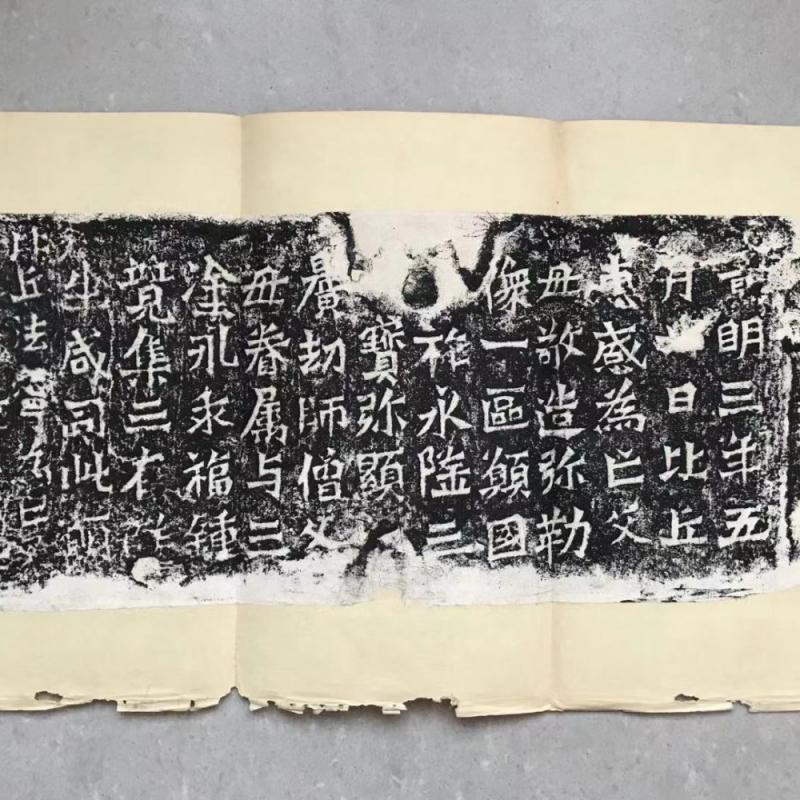 明三年五
月日比丘
惠感為亡父
母敬造弥勒
像一區願國
祚永隆三
寶弥顯
曠劫師僧父
母眷属与三
塗永乖福鍾
竟集三有群
生咸同此願
比丘法寧為亡